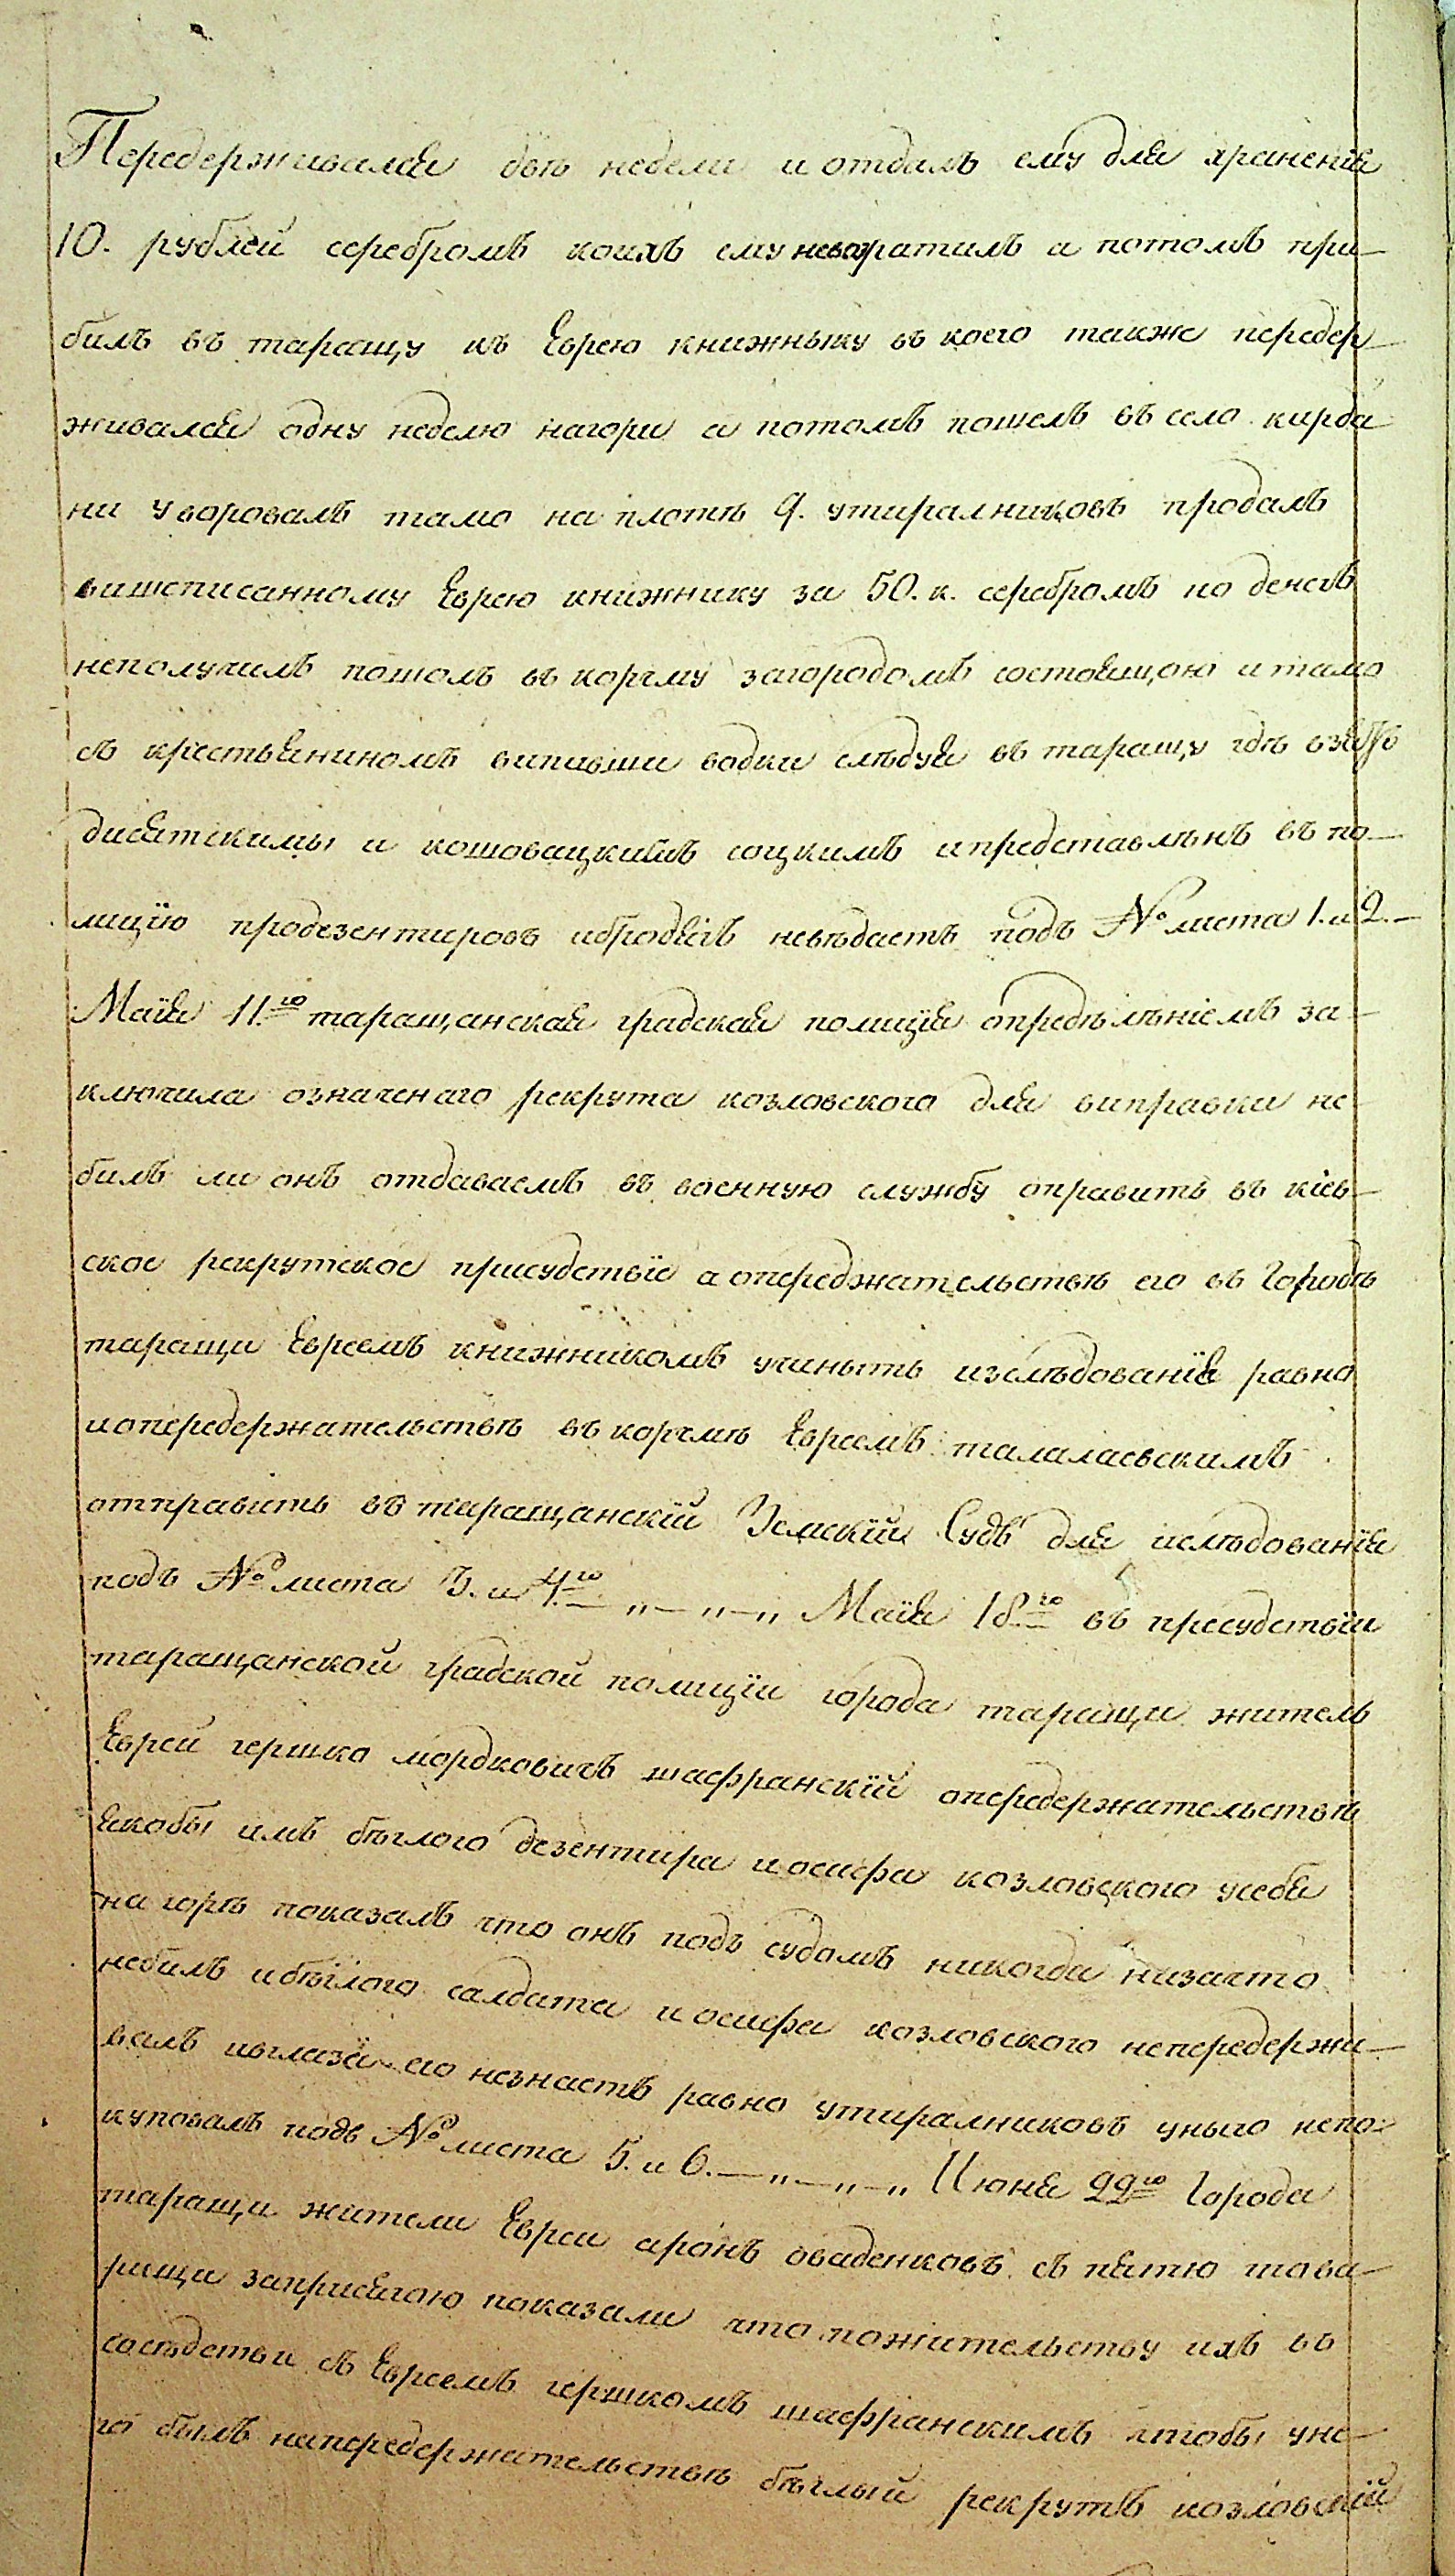 Передерживался двѣ недели и отдалъ ему для хранения
10. рублей серебромъ коихъ ему невозратилъ а потомъ при-
билъ въ таращу къ Еврею книжныку въ коего также передер-
живался одну неделю нагори а потомъ пошелъ въ село кирда
ни уворовалъ тамо на плотѣ 9. утиралниковъ продалъ
вишеписанному Еврею книжнику за 50. к. серебромъ но денегъ
неполучилъ пошолъ въ корчму загородомъ состоящою и тамо
съ крестьяниномъ випивши водки слѣдуя въ таращу гдѣ взятъ
дисятскимы и кошовацкимъ соцкимъ и представлѣнъ въ по-
лицїю продезентировъ и бродягъ невѣдаетъ подъ № листа 1. и 2.-
Маїя 11.го таращанская градская полицїя опредѣлѣнїемъ за-
ключила означенаго рекрута козловского для виправки не
билъ ли онъ отдаваемъ въ военную службу оправить въ кїев-
ское рекрутское присудствїе а опереджательствѣ его въ Городѣ
таращи Евреемъ книжникомъ учиныть изслѣдованїя равно
и опередержательствѣ въ корчмѣ Евреемъ талалаевскимъ
отправить въ таращанскїй Земскїй Судъ для ислѣдованїя
подъ № листа 3. и 4.го -„-„-„ Маїя 18.го въ пресудствїи
таращанской градской полицїи города таращи житель
Еврей гершко мордковичъ шафранскїй опередержательствѣ
якобы имъ бѣглого дезентира иосифа козловского усебя
на горѣ показалъ что онъ подъ судомъ никогда низачто
небилъ и бѣглого салдата иосифа козловского непередержи-
валъ ивглаза его незнаетъ равно утиралниковъ уныго непо-
куповалъ подъ № листа 5. и 6.-„-„-„ Июня 22го Города
таращи жители Евреи аронъ оваденковъ съ пятю това-
рищи заприсягою показали что пожительству ихъ въ
сосѣдстви съ Евреемъ гершкомъ шафранскимъ чтобы уне-
го былъ напередержательствѣ бѣглый рекрутъ козловскїй